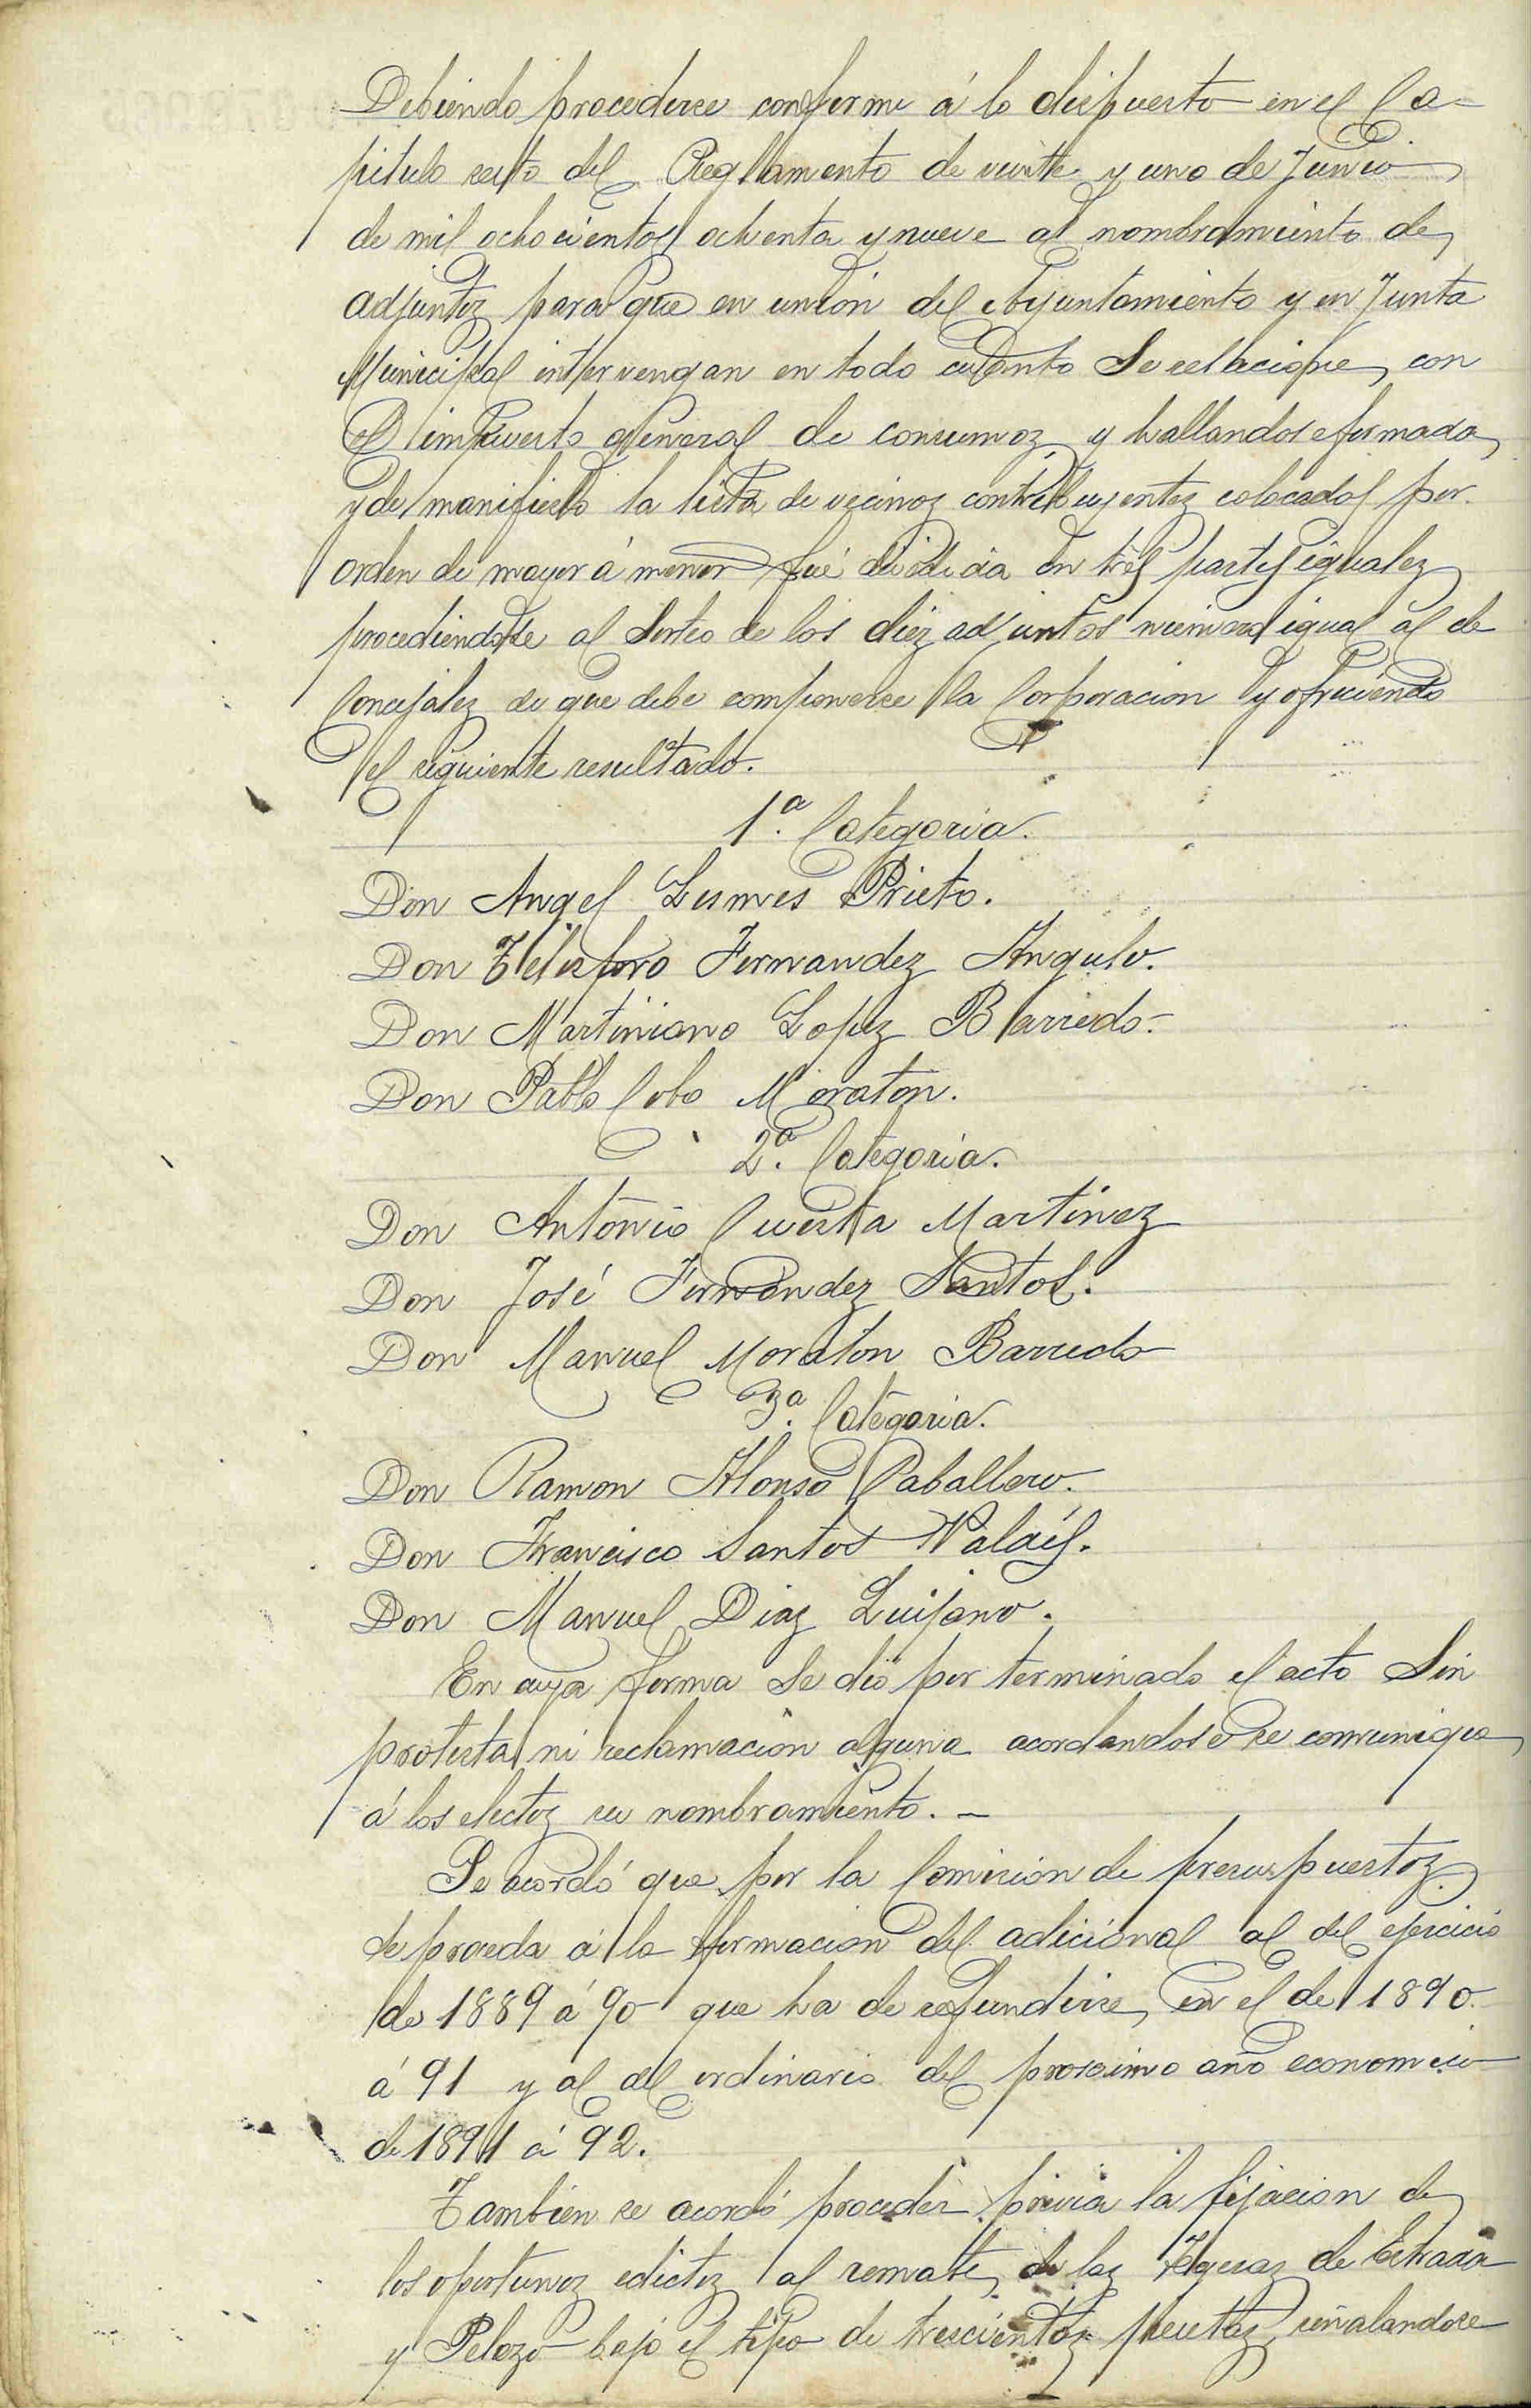 Debiendo procederse conforme á lo dispuesto en el Ca-
pitulo sesto del Reglamento de veinte y uno de Junio
de mil ochocientos ochenta y nueve al nombramiento de
adjuntos para que en unión del Ayuntamiento y en Junta
Municipal intervengan en todo cuanto se relacione con
el impuesto general de consumos y hallandose formada
y de manifiesto la lista de vecinos contribuyentes colocados por
orden de mayor á menor fué dividida en tres partes iguales
procediendose al sorteo de los diez adjuntos número igual al de
Concejales de que debe componerse la Corporacion y ofreciendo
el siguiente resultado.
1.ª Categoria.
Don Angel Lesmes Prieto.
Don Telesforo Fernandez Angulo.
Don Martiniano Lopez Barredo.
Don Pablo Cobo Moraton.
2.ª Categoria.
Don Antonio Cuesta Martinez
Don José Fernandez Santos.
Don Manuel Moraton Barredo
3.ª Categoria.
Don Ramon Alonso Caballero.
Don Francisco Santos
Don Manuel Diaz Quijano.
En cuya forma se dió por terminado el acto sin
protesta ni reclamación alguna acordandose se comunique
á los electos su nombramiento. -
Se acordó que por la Comision de presupuestos
se proceda á la formacion del adicional al del ejercicio
de 1889 á 90 que ha de refundirse en el de 1890
á 91 y al del ordinario del procsimo año economico
de 1891 á 92.
Tambien se acordó proceder previa la fijacion de
los oportunos edictos al remate de las de Estrada
y Pelozo bajo el tipo de trescientas pesetas, señalandose